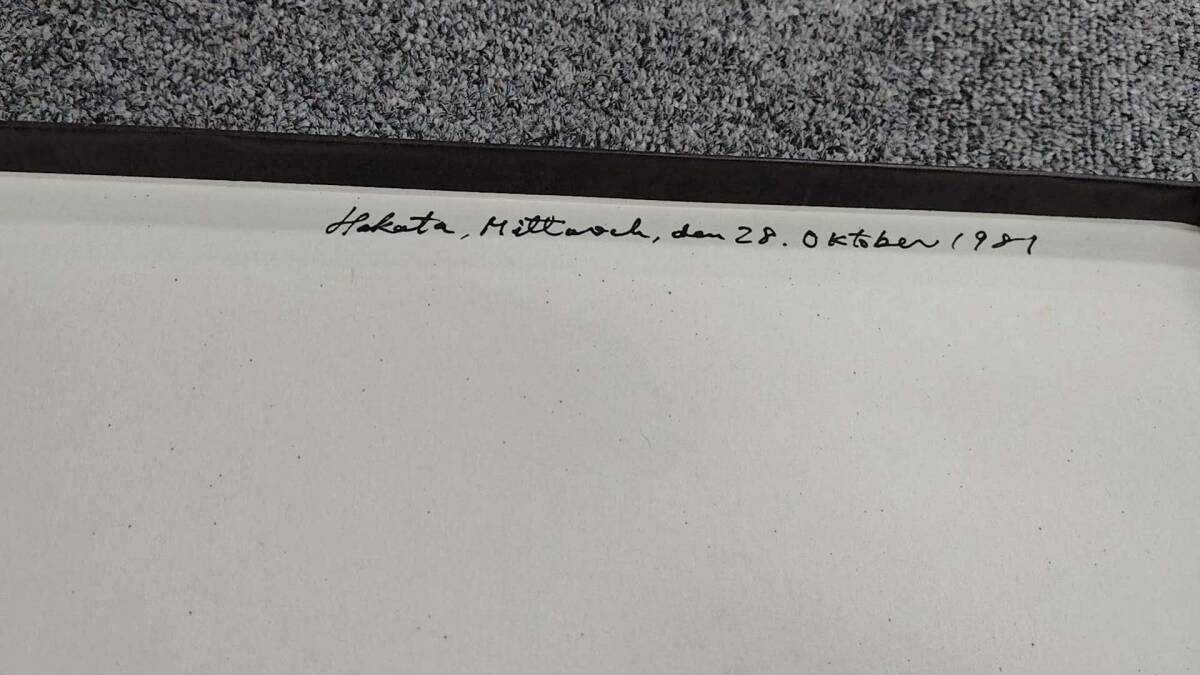 Hakata, Mittwoch, den 28. Oktober 1987